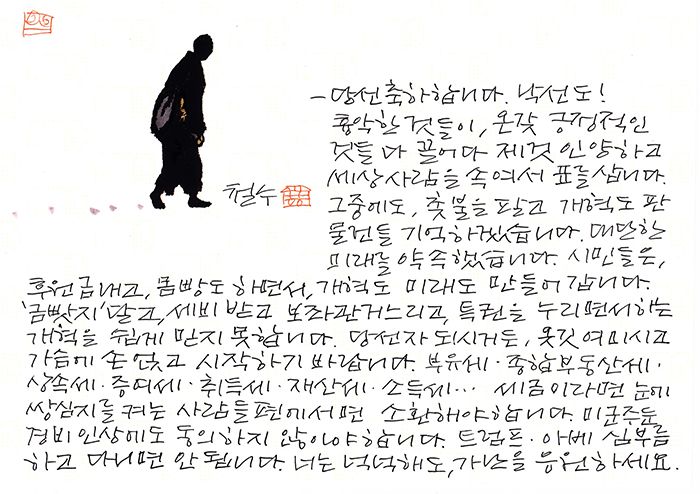 - 당선 축하합니다. 낙선도!
흉악한 것들이, 온갖 긍정적인
것들 다 끌어다 제것인양하고
세상사람을 속여서 표를 삽니다.
철수
그중에도, 촛불을 팔고 개혁도 판
물건들 기억하겠습니다. 대단한
미래를 약속했습니다. 시민들은,
후원금내고, 몸빵도 하면서, 개혁도 미래도 만들어 갑니다.
'금빳지' 달고, 세비 받고 보좌관거느리고, 특권을 누리면서하는
개혁을 쉽게 믿지 못합니다. 당선자 되시거든, 옷깃 여미시고
가슴에 손 얹고 시작하기 바랍니다. 부유세·종합부동산세·
상속세·증여세·취득세·재산세·소득세··· 세금이라면 눈에
쌍심지를 켜는 사람들편에서면 소환해야합니다. 미군주둔
경비인상에도 동의하지 않아야합니다. 트럼프·아베 심부름
하고 다니면 안됩니다. 너는 넉넉해도, 가난을 응원하세요.